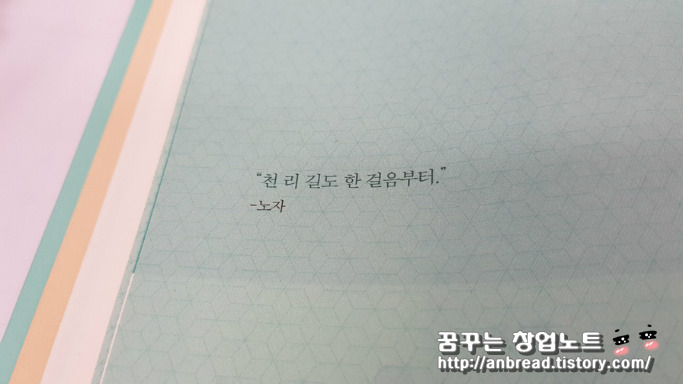 “천 리 길도 한 걸음부터.”
-노자
꿈꾸는 창업노트
http://anbread.tistory.com/